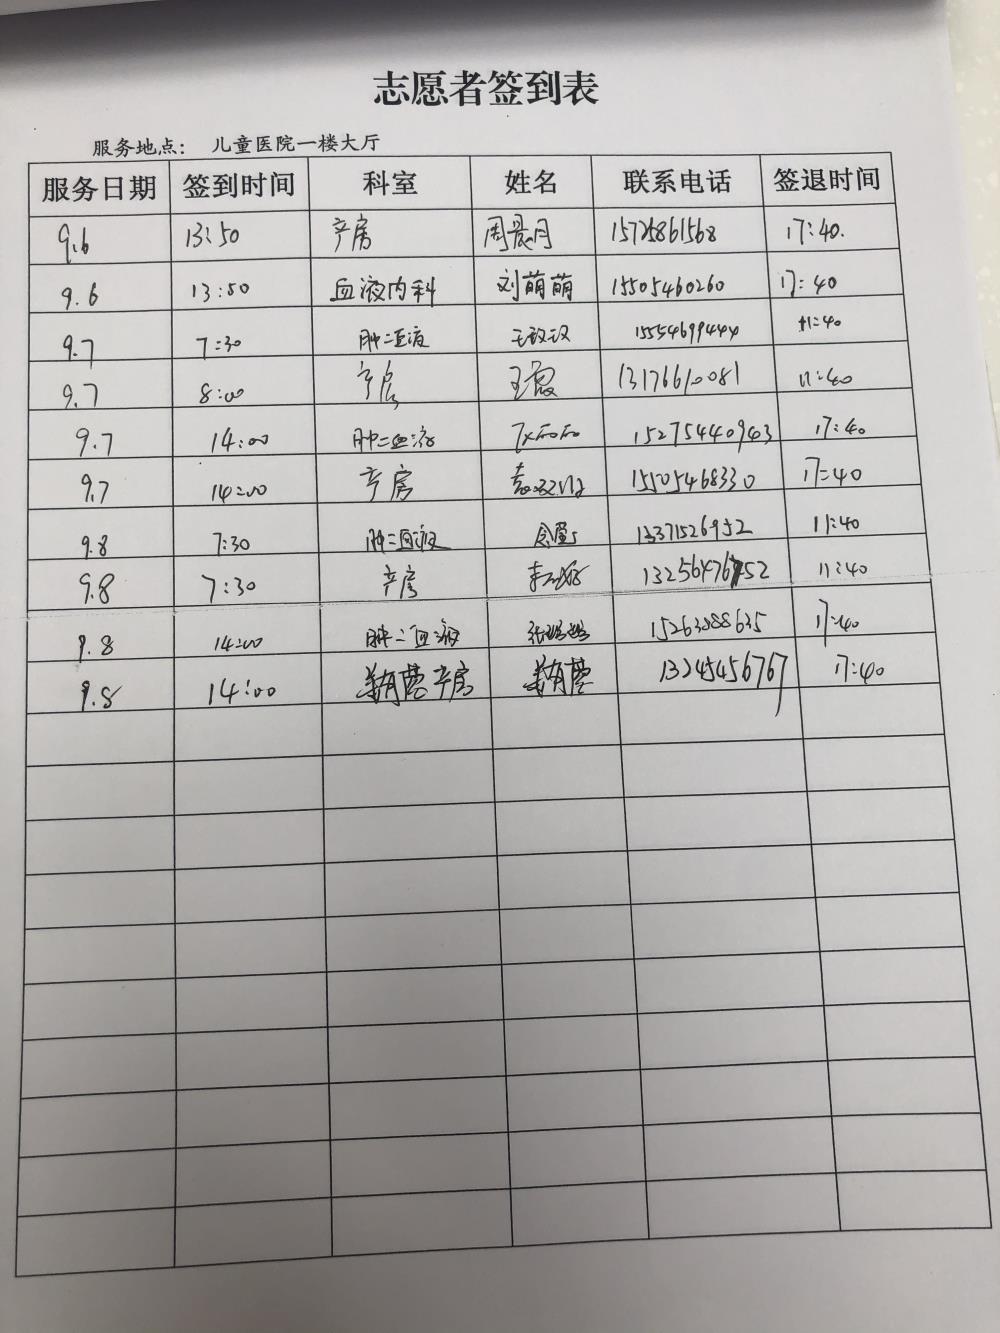 志愿者签到表
服务地点： 儿童医院一楼大厅
服务日期 签到时间 科室 姓名 联系电话 签退时间
9.6 13:50 产房 周晨月 15725861568 17:40.
9.6 13:50 血液内科 刘萌萌 15505460260 17:40
9.7 7:30 肿二血液 15554699444 11:40
9.7 8:00 产房 王霞 13176610081 11:40
9.7 14:00 肿二血液 15275440943 17:40
9.7 14:00 产房 15505468330 17:40
9.8 7:30 肿二血液 13371526952 11:40
9.8 7:30 产房 11:40
9.8 14:00 肿二血液 15263888635 17:40
9.8 14:00 产房 13245456767 17:40